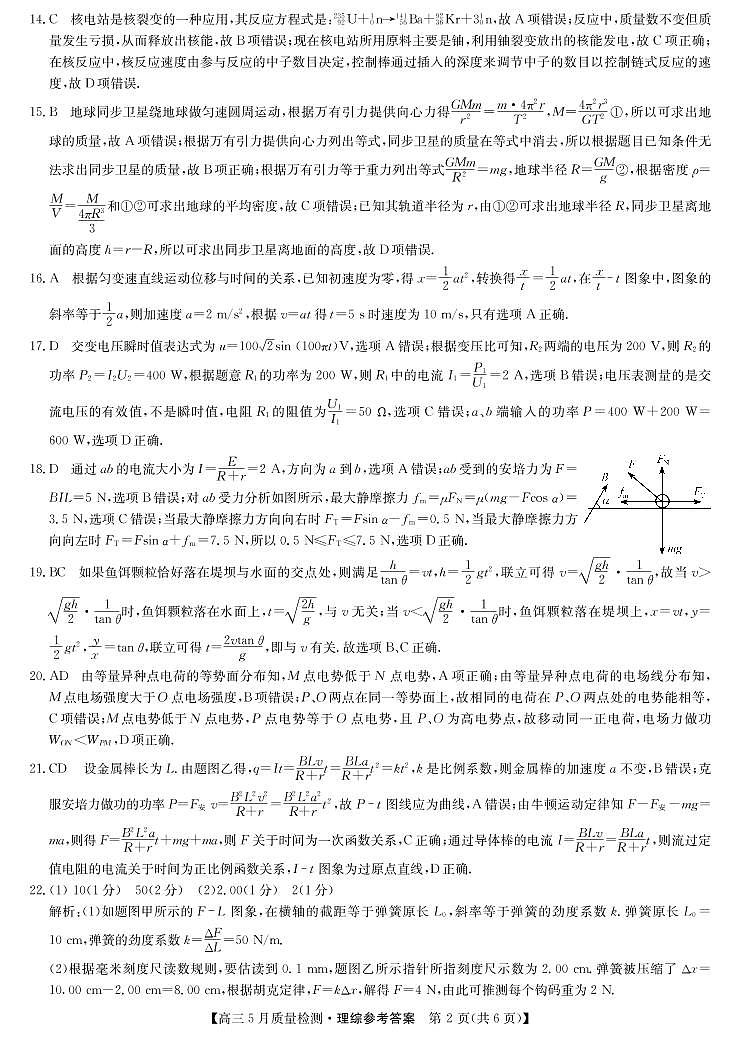 14. C 核电站是核裂变的一种应用,其反应方程式是:²³⁵₉₂U+¹₀n→¹⁴¹₅₆Ba+⁹²₃₆Kr+3¹₀n,故 A 项错误;反应中,质量数不变但质
量发生亏损,从而释放出核能,故 B 项错误;现在核电站所用原料主要是铀,利用铀裂变放出的核能发电,故 C 项正确;
在核反应中,核反应速度由参与反应的中子数目决定,控制棒通过插入的深度来调节中子的数目以控制链式反应的速
度,故 D 项错误.
15. B 地球同步卫星绕地球做匀速圆周运动,根据万有引力提供向心力得GMm/r²=m·4π²r/T²,M=4π²r³/GT²①,所以可求出地
球的质量,故 A 项错误;根据万有引力提供向心力列出等式,同步卫星的质量在等式中消去,所以根据题目已知条件无
法求出同步卫星的质量,故 B 项正确;根据万有引力等于重力列出等式GMm/R²=mg,地球半径 R=GM/g②,根据密度 ρ=
M/V=M/(4πR³/3)和①②可求出地球的平均密度,故 C 项错误;已知其轨道半径为 r,由①②可求出地球半径 R,同步卫星离地
面的高度 h=r-R,所以可求出同步卫星离地面的高度,故 D 项错误.
16. A 根据匀变速直线运动位移与时间的关系,已知初速度为零,得 x=1/2at²,转换得x/t=1/2at,在x/t-t 图象中,图象的
斜率等于1/2a,则加速度 a=2 m/s²,根据 v=at 得 t=5 s 时速度为 10 m/s,只有选项 A 正确.
17. D 交变电压瞬时值表达式为 u=100√2sin (100πt)V,选项 A 错误;根据变压比可知,R₂ 两端的电压为 200 V,则 R₂ 的
功率 P₂=I₂U₂=400 W,根据题意 R₁ 的功率为 200 W,则 R₁ 中的电流 I₁=P₁/U₁=2 A,选项 B 错误;电压表测量的是交
流电压的有效值,不是瞬时值,电阻 R₁ 的阻值为U₁/I₁=50 Ω,选项 C 错误;a、b 端输入的功率 P=400 W+200 W=
600 W,选项 D 正确.
18. D 通过 ab 的电流大小为 I=E/(R+r)=2 A,方向为 a 到 b,选项 A 错误;ab 受到的安培力为 F=
BIL=5 N,选项 B 错误;对 ab 受力分析如图所示,最大静摩擦力 fₘ=μF_N=μ(mg-Fcos α)=
3.5 N,选项 C 错误;当最大静摩擦力方向向右时 F_T=Fsin α-fₘ=0.5 N,当最大静摩擦力方
向向左时 F_T=Fsin α+fₘ=7.5 N,所以 0.5 N≤F_T≤7.5 N,选项 D 正确.
F_N
F
B
α
fₘ
F_T
mg
19. BC 如果鱼饵颗粒恰好落在堤坝与水面的交点处,则满足h/tan θ=vt,h=1/2gt²,联立可得 v=√(gh/2)·1/tan θ,故当 v>
√(gh/2)·1/tan θ时,鱼饵颗粒落在水面上,t=√(2h/g),与 v 无关;当 v<√(gh/2)·1/tan θ时,鱼饵颗粒落在堤坝上,x=vt,y=
1/2gt²,y/x=tan θ,联立可得 t=2vtan θ/g,即与 v 有关.故选项 B、C 正确.
20. AD 由等量异种点电荷的等势面分布知,M 点电势低于 N 点电势,A 项正确;由等量异种点电荷的电场线分布知,
M 点电场强度大于 O 点电场强度,B 项错误;P、O 两点在同一等势面上,故相同的电荷在 P、O 两点处的电势能相等,
C 项错误;M 点电势低于 N 点电势,P 点电势等于 O 点电势,且 P、O 为高电势点,故移动同一正电荷,电场力做功
W_ON<W_PM,D 项正确.
21. CD 设金属棒长为 L.由题图乙得,q=It=BLv/(R+r)t=BLa/(R+r)t²=kt²,k 是比例系数,则金属棒的加速度 a 不变,B 错误;克
服安培力做功的功率 P=F安 v=B²L²v²/(R+r)=B²L²a²/(R+r)t²,故 P-t 图线应为曲线,A 错误;由牛顿运动定律知 F-F安-mg=
ma,则得 F=B²L²a/(R+r)t+mg+ma,则 F 关于时间为一次函数关系,C 正确;通过导体棒的电流 I=BLv/(R+r)=BLa/(R+r)t,则流过定
值电阻的电流关于时间为正比例函数关系,I-t 图象为过原点直线,D 正确.
22. (1) 10(1 分) 50(2 分) (2)2.00(1 分) 2(1 分)
解析:(1)如题图甲所示的 F-L 图象,在横轴的截距等于弹簧原长 L₀,斜率等于弹簧的劲度系数 k.弹簧原长 L₀=
10 cm,弹簧的劲度系数 k=ΔF/ΔL=50 N/m.
(2)根据毫米刻度尺读数规则,要估读到 0.1 mm,题图乙所示指针所指刻度尺示数为 2.00 cm.弹簧被压缩了 Δx=
10.00 cm-2.00 cm=8.00 cm,根据胡克定律,F=kΔx,解得 F=4 N,由此可推测每个钩码重为 2 N.
【高三 5 月质量检测·理综参考答案 第 2 页(共 6 页)】